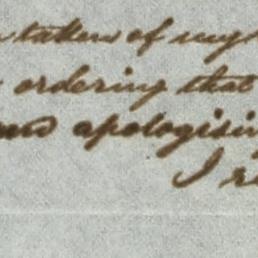 taken of my
ordering that
apologising
I